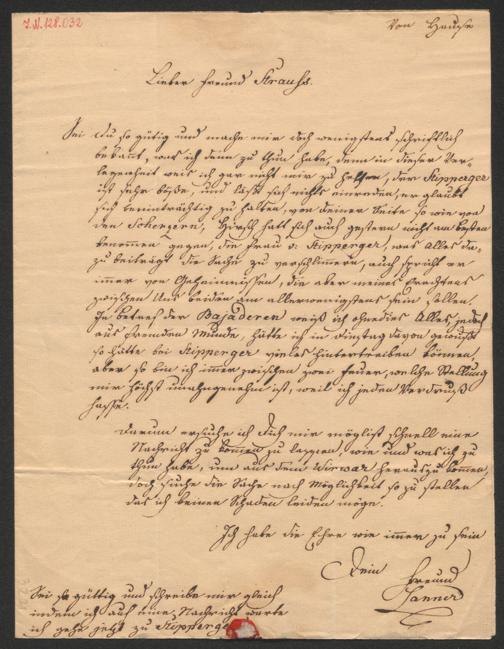 I.N. 128.032
Von Hause
Lieber Freund Strauss.
Sei du so gütig und mache mir doch wenigstens schriftlich
bekannt, was ich denn zu thun habe, denn in dieser Ver-
legenheit weis ich gar nicht mir zu helfen, der Stipperger
ist sehr böse, und lässt sich nichts einreden, er glaubt
sich beeinträchtig zu halten, von deiner Seite so wie von
den Scherzern, Hirsch hatt sich auch gestern nicht am besten
benommen gegen, die Frau v: Stipperger, was alles da-
zu beiträgt die Sache zu verschlimmern, auch spricht er
immer von Geheimnissen, die aber meines Erachtens
zwischen Uns beiden am allerwenigstens sein sollen.
In Betreff der Bajaderen weiß ich ohnedies Alles jedoch
aus fremden Munde, hätte ich in dinstag davon gewusst
so hätte bei Stipperger vieles hintertreiben können,
aber so bin ich immer zwischen zwei Feuer, welche Stellung
mir höchst unangenehm ist, weil ich jeden Verdruß
hasse.
Darum ersuche ich Dich mir möglist schnell eine
Nachricht zu kommen zu lassen, wie und was ich zu
thun habe, um aus dem Wirwar herauszu kommen,
doch suche die Sache nach Möglichkeit so zu stellen
das ich keinen Schaden leiden möge.
Ich habe die Ehre wie immer zu sein
Dein Freund
Lanner
Sei so güttig und schreibe mir gleich
indem ich auf eine Nachricht warte
ich gehe jetzt zu Stipperger